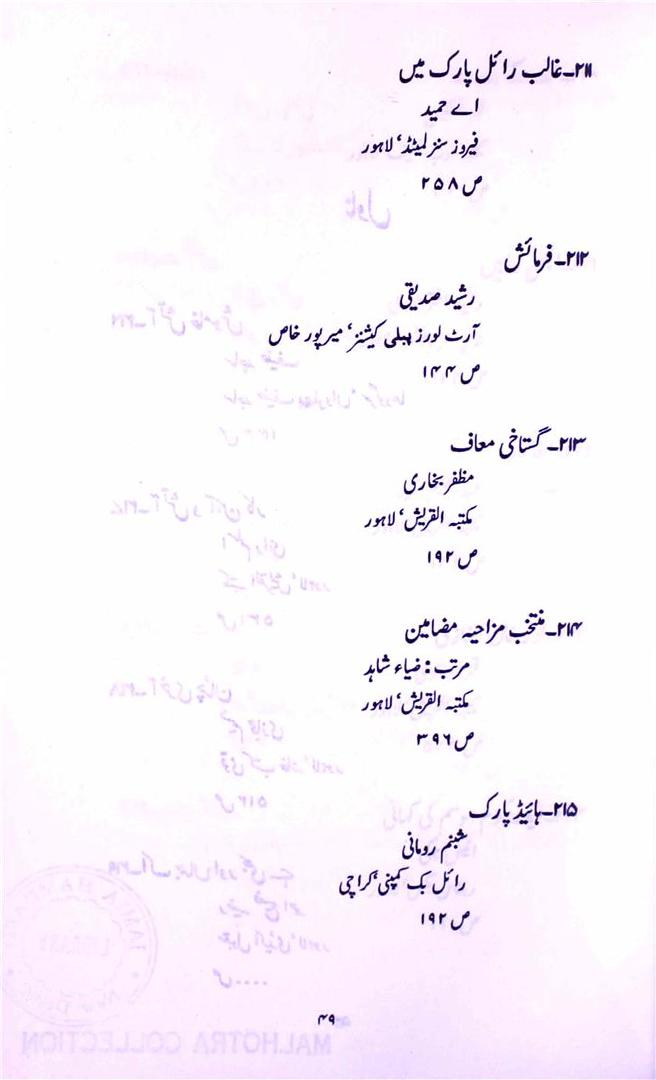 ۲۱۱۔غالب رائل پارک میں
اے حمید
فیروز سنز لمیٹڈ، لاہور
ص ۲۵۸
۲۱۲۔فرمائش
رشید صدیقی
آرٹ لورز پبلی کیشنز، میرپور خاص
ص ۱۴۴
۲۱۳۔ گستاخی معاف
مظفر بخاری
مکتبہ القریش، لاہور
ص ۱۹۲
۲۱۴۔منتخب مزاحیہ مضامین
مرتب : ضیاء شاہد
مکتبہ القریش، لاہور
ص ۳۹۶
۲۱۵۔ہائیڈ پارک
شبنم رومانی
رائل بک کمپنی، کراچی
ص ۱۹۲
۴۹
MALHOTRA COLLECTION